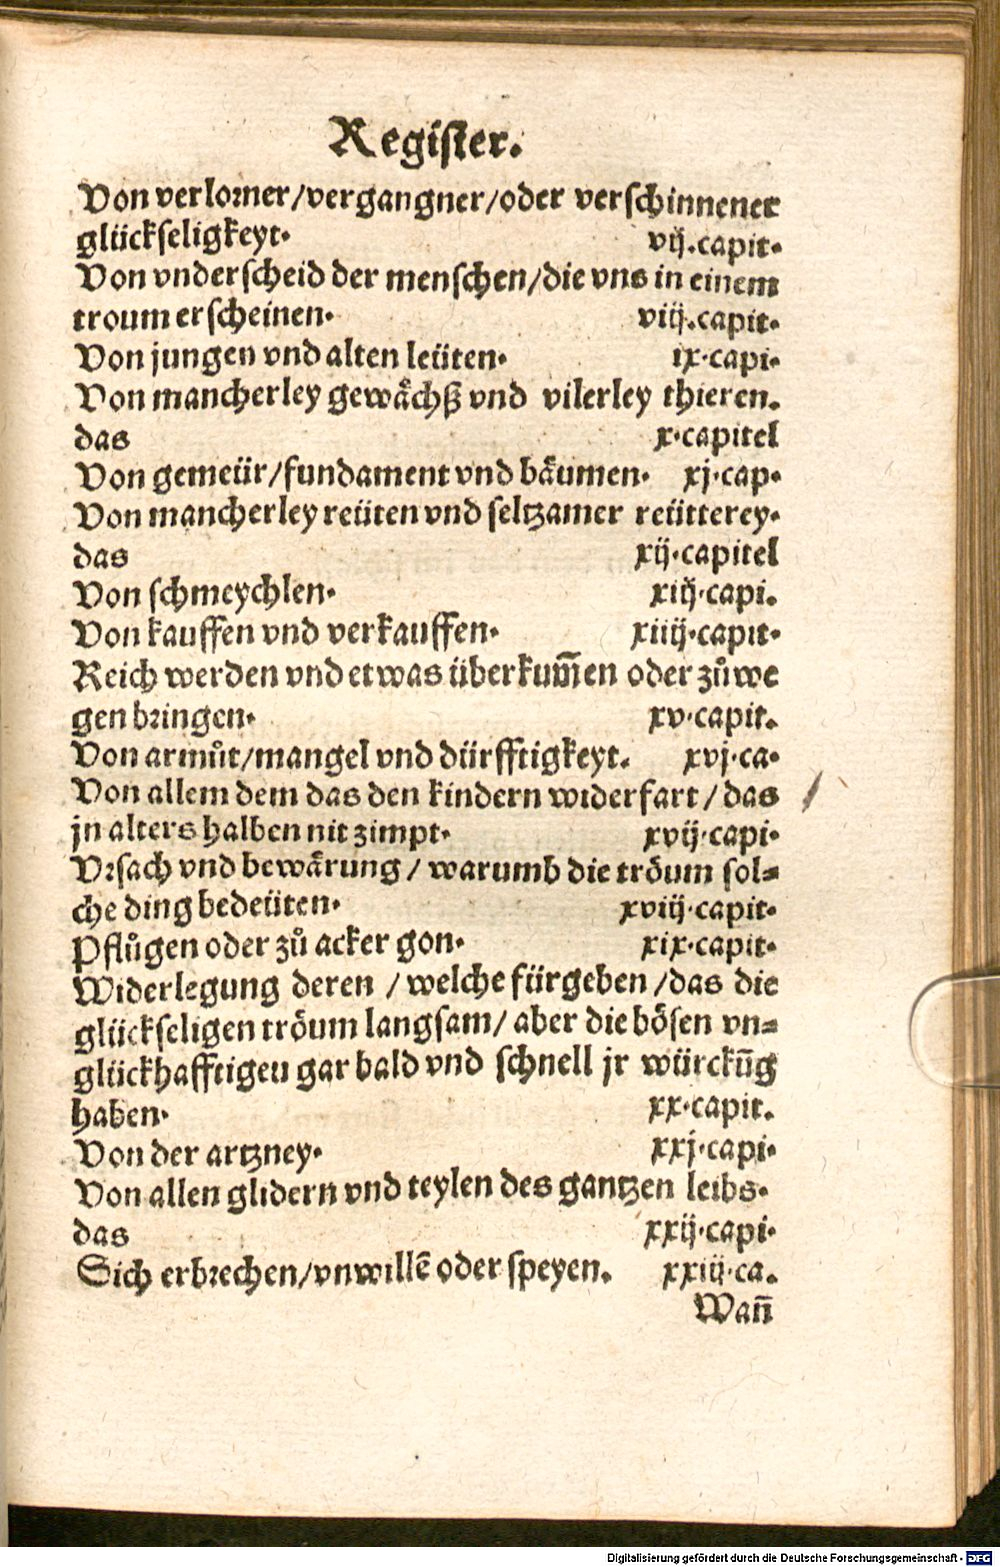 Register.
Von verlorner/vergangner/oder verschinnener
glückseligkeyt. vij.capit.
Von vnderscheid der menschen/die vns in einem
troum erscheinen. viij.capit.
Von jungen vnd alten leüten. ix.capi.
Von mancherley gewächß vnd vilerley thieren.
das x.capitel
Von gemeür/fundament vnd bäumen. xj.cap.
Von mancherley reüten vnd seltzamer reütterey.
das xij.capitel
Von schmeychlen. xiij.capi.
Von kauffen vnd verkauffen. xiiij.capit.
Reich werden vnd etwas überkum̅en oder zůwe
gen bringen. xv.capit.
Von armůt/mangel vnd dürfftigkeyt. xvj.ca.
Von allem dem das den kindern widerfart/das
jn alters halben nit zimpt. xvij.capi.
Vrsach vnd bewärung/warumb die tröum sol⸗
che ding bedeüten. xviij.capit.
Pflůgen oder zů acker gon. xix.capit.
Widerlegung deren/welche fürgeben/das die
glückseligen tröum langsam/aber die bösen vn⸗
glückhafftigen gar bald vnd schnell jr würckūg
haben. xx.capit.
Von der artzney. xxj.capi.
Von allen glidern vnd teylen des gantzen leibs.
das xxij.capi.
Sich erbrechen/vnwillē oder speyen. xxiij.ca.
Wan̅
Digitalisierung gefördert durch die Deutsche Forschungsgemeinschaft - DFG